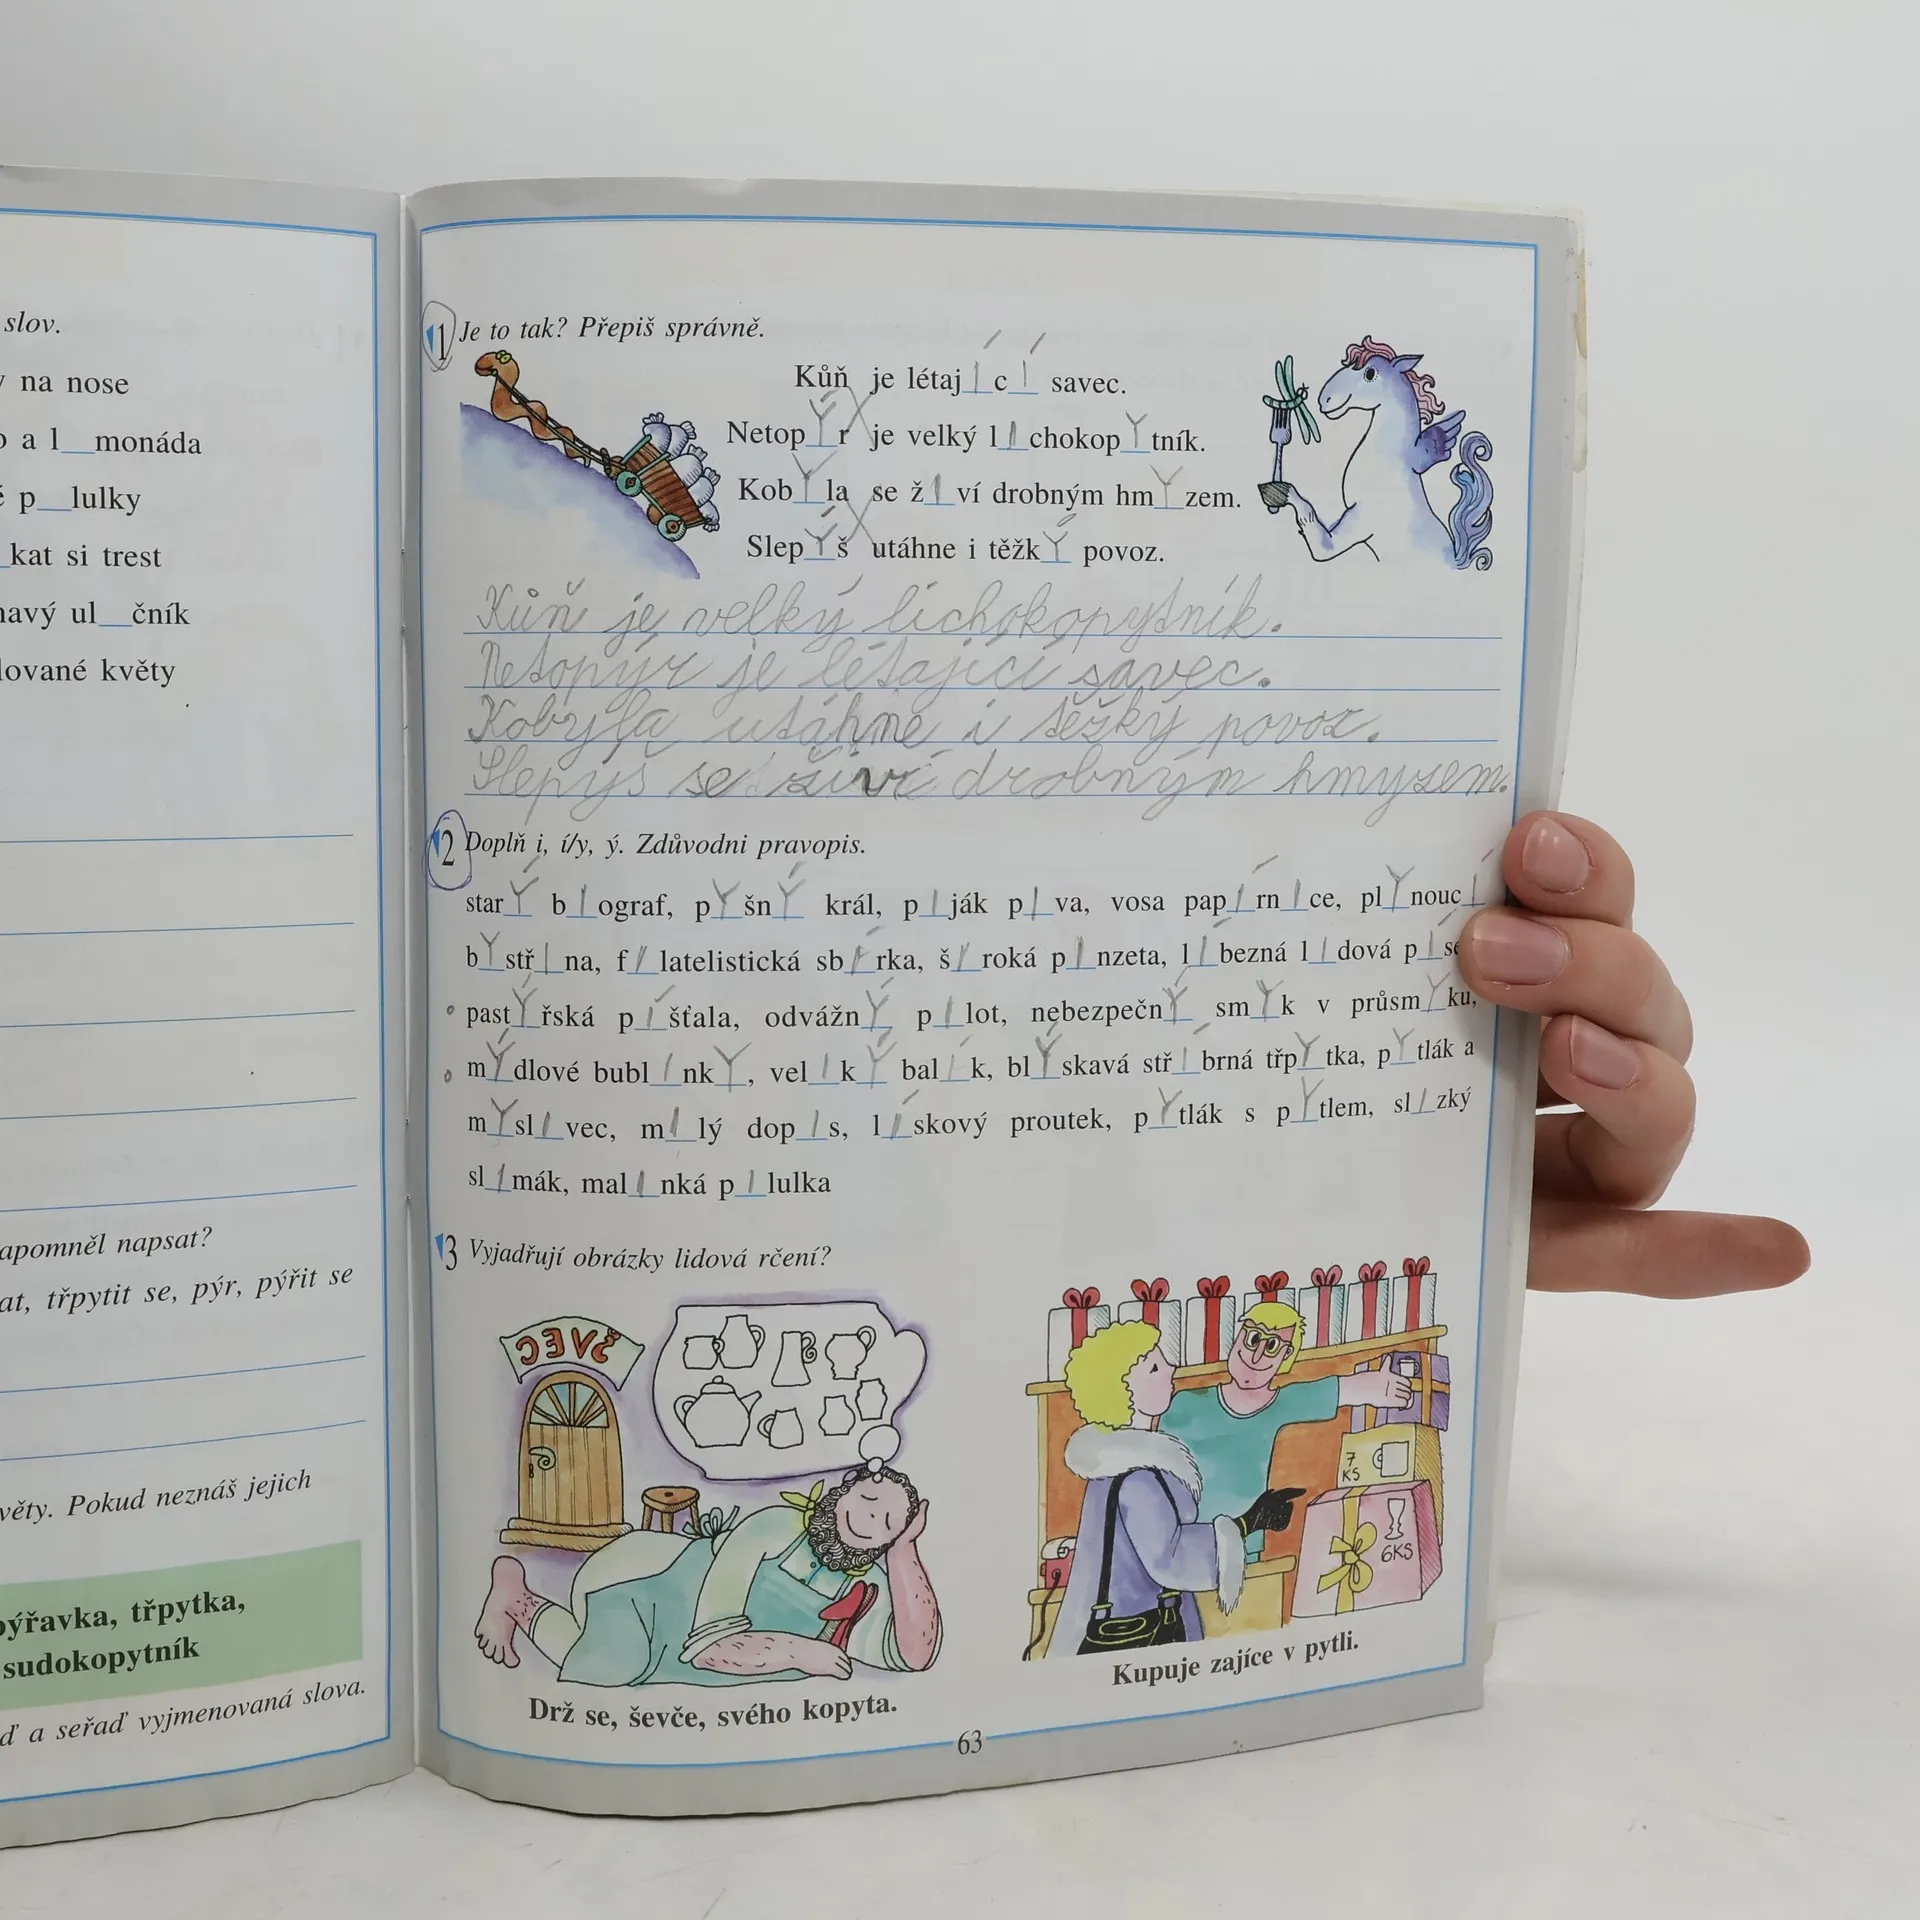 slov.
na nose
a l__monáda
p__lulky
kat si trest
ul__čník
lované květy
apomněl napsat?
at, třpytit se, pýr, pýřit se
věty. Pokud neznáš jejich
pýřavka, třpytka,
sudokopytník
a seřaď vyjmenovaná slova.
1 Je to tak? Přepiš správně.
Kůň je létající savec.
Netopýr je velký lichokopytník.
Kobyla se živí drobným hmyzem.
Slepýš utáhne i těžký povoz.
Kůň je velký lichokopytník.
Netopýr je létající savec.
Kobyla utáhne i těžký povoz.
Slepýš se živí drobným hmyzem.
2 Doplň i, í/y, ý. Zdůvodni pravopis.
starý biograf, pyšný král, piják piva, vosa papírnice, plynoucí
bystřina, filatelistická sbírka, široká pinzeta, líbezná lidová
pastýřská píšťala, odvážný pilot, nebezpečný smyk v průsmyku,
mýdlové bublinky, veliký balík, blýskavá stříbrná třpytka, pytlák a
myslivec, milý dopis, lískový proutek, pytlák s pytlem, slizký
slimák, malinká pilulka
3 Vyjadřují obrázky lidová rčení?
ŠVEC
7
KS
6KS
Drž se, ševče, svého kopyta.
Kupuje zajíce v pytli.
63